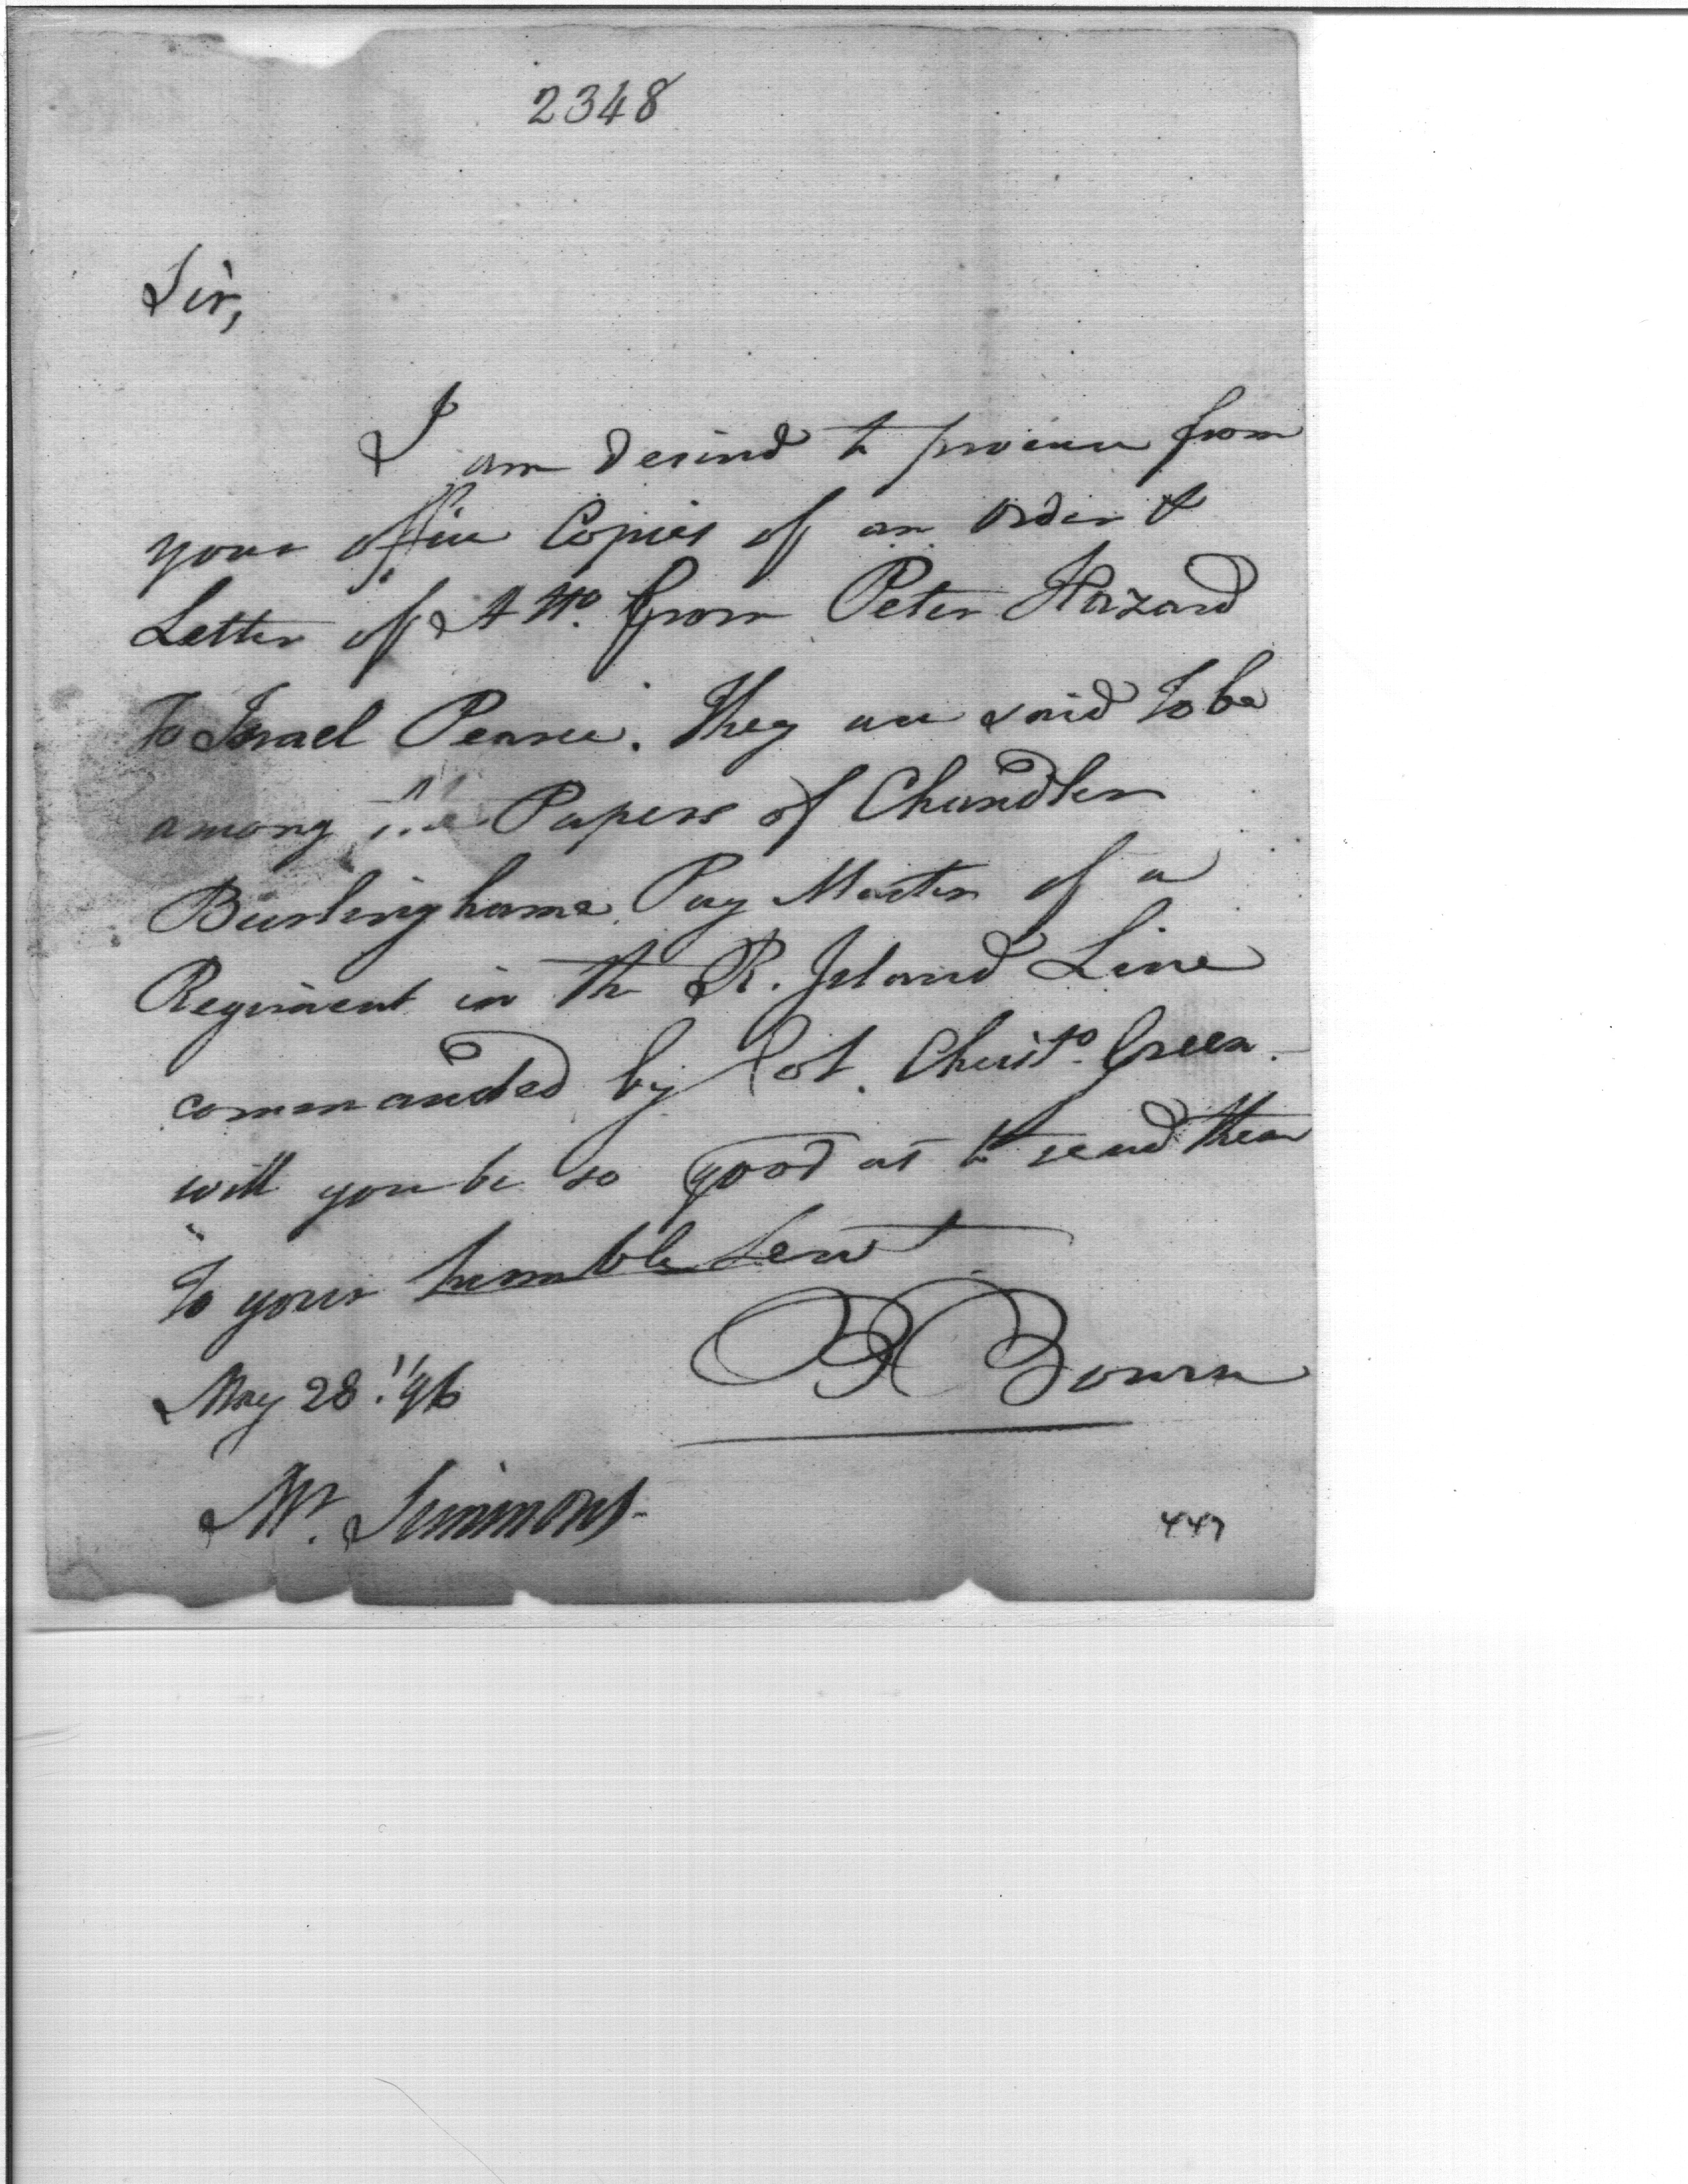 2348
Sir,
I am desired to procure from
your office Copies of an order &
Letter of Atto. from Peter Hazard
to Israel Pearce. They are said to be
among the Papers of Chandler
Burlinghame Pay Master of a
Regiment in the R. Island Line
commanded by Col. Christo. Green.
will you be so good as to send them
to your humble Servt
B Bourn
May 28. '96
Mr. Simmons
447